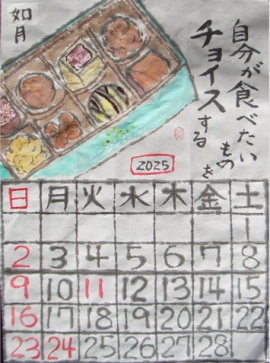 自分が食べたい
ものを
チョイスする
如月
2025
日 月 火 水 木 金 土
1
2 3 4 5 6 7 8
9 10 11 12 13 14 15
16 17 18 19 20 21 22
23 24 25 26 27 28